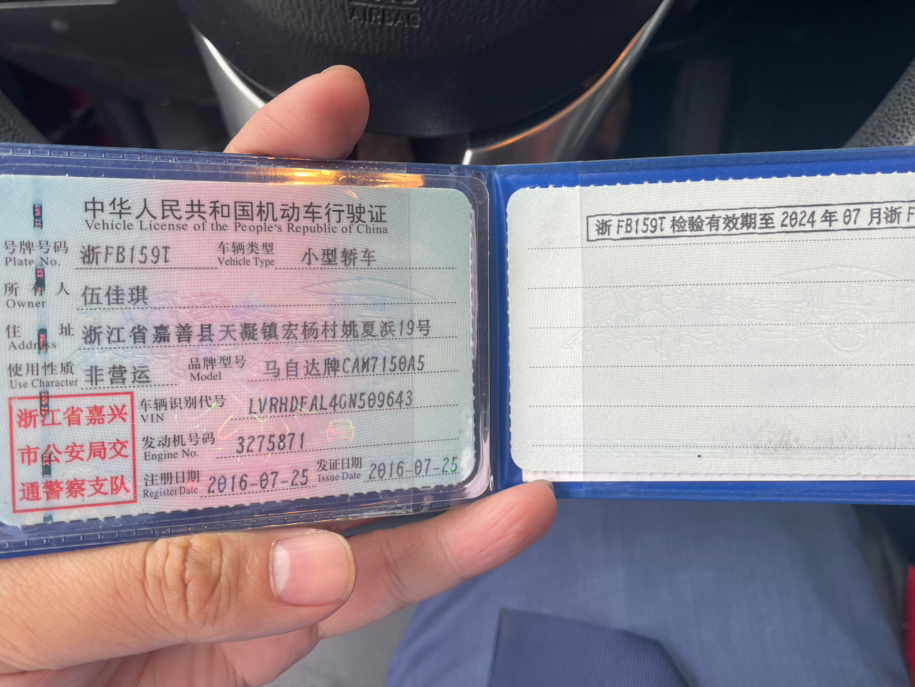 AIRBAG
中华人民共和国机动车行驶证
Vehicle License of the People's Republic of China
号牌号码 浙FB159T 车辆类型 小型轿车
Plate No. Vehicle Type
所有人 伍佳琪
Owner
住址 浙江省嘉善县天凝镇宏杨村姚夏浜19号
Address
使用性质 非营运 品牌型号 马自达牌CAM7150A5
Use Character Model
浙江省嘉兴
市公安局交
通警察支队
车辆识别代号 LVRHDFAL4GN509643
VIN
发动机号码 3275871
Engine No.
注册日期 2016-07-25 发证日期 2016-07-25
Register Date Issue Date
浙FB159T 检验有效期至 2024年07月浙F